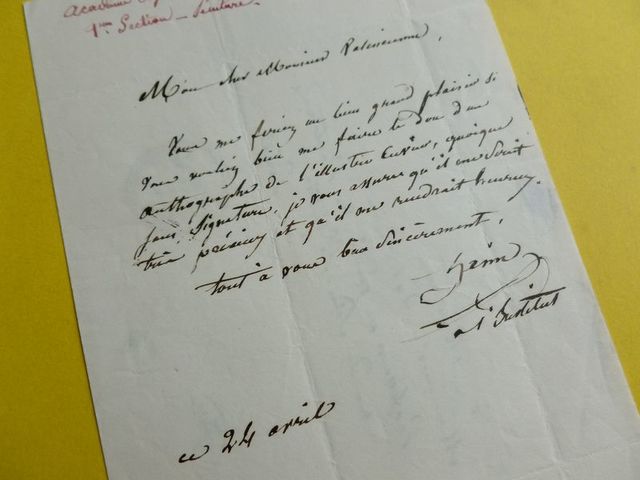 Academie
1ère Section - Peinture.
Mon cher Monsieur Valencienne,
Vous me feriez un bien grand plaisir si
vous vouliez bien me faire le don d'un
authographe de l'illustre Cuvier, quoique
sans signature, je vous assure qu'il me serait
très précieux et qu'il me rendrait heureux.
tout à vous bien sincèrement,
à l'Institut
ce 24 avril